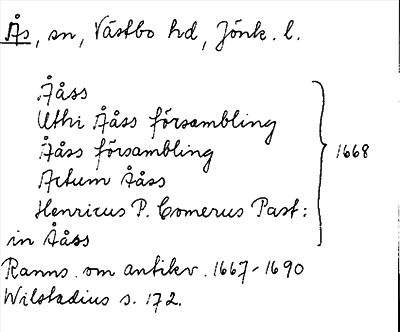 Ås, sn, Västbo hd, Jönk. l.
Ååss
Uthi Ååss försambling
Ååss försambling
Actum Ååss
Henricus P. Comerus Past:
in Ååss
1668
Ranns. om antikv. 1667-1690
Wilstadius s. 172.